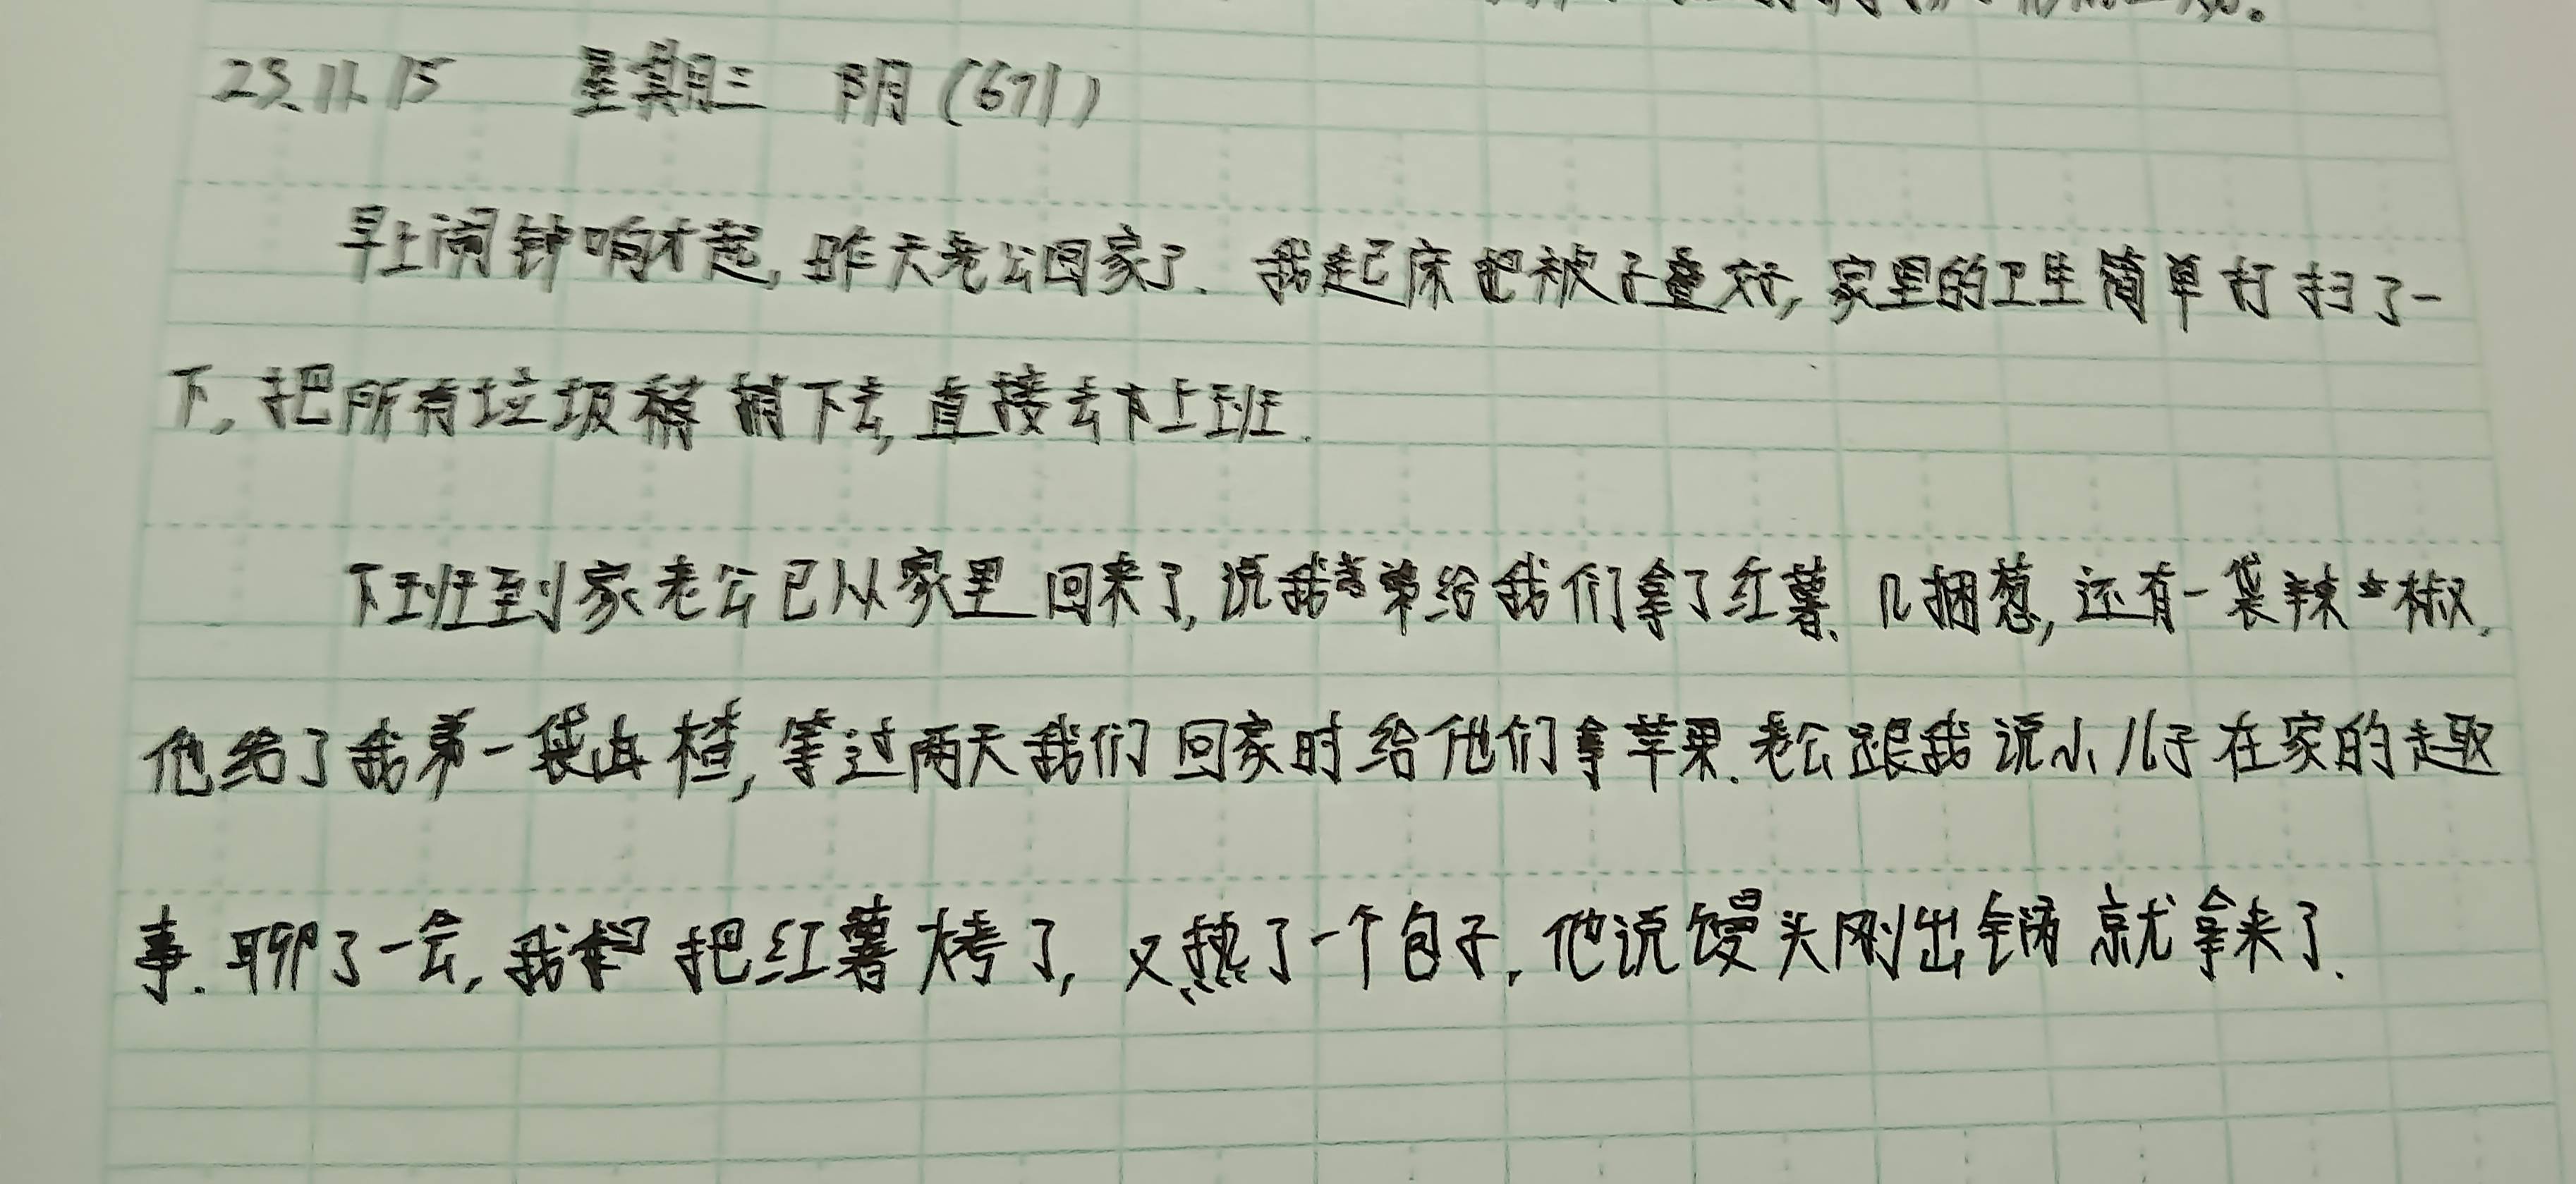 23.11.15 星期三 阴(671)
早上闹钟响才起,昨天老公回家了.我起床把被子叠好,家里的卫生简单打扫了一
下,把所有垃圾稍捎下去,直接去下上班.
下班到家老公已从家里回来了,说我弟给我们拿了红薯、几捆葱,还有一袋辣椒.
他给了我弟一袋山楂,等过两天我们回家时给他们拿苹果.老公跟我说小儿子在家的趣
事.聊了一会,我把红薯烤了,又热了一个包子,他说馒头刚出锅就拿来了.